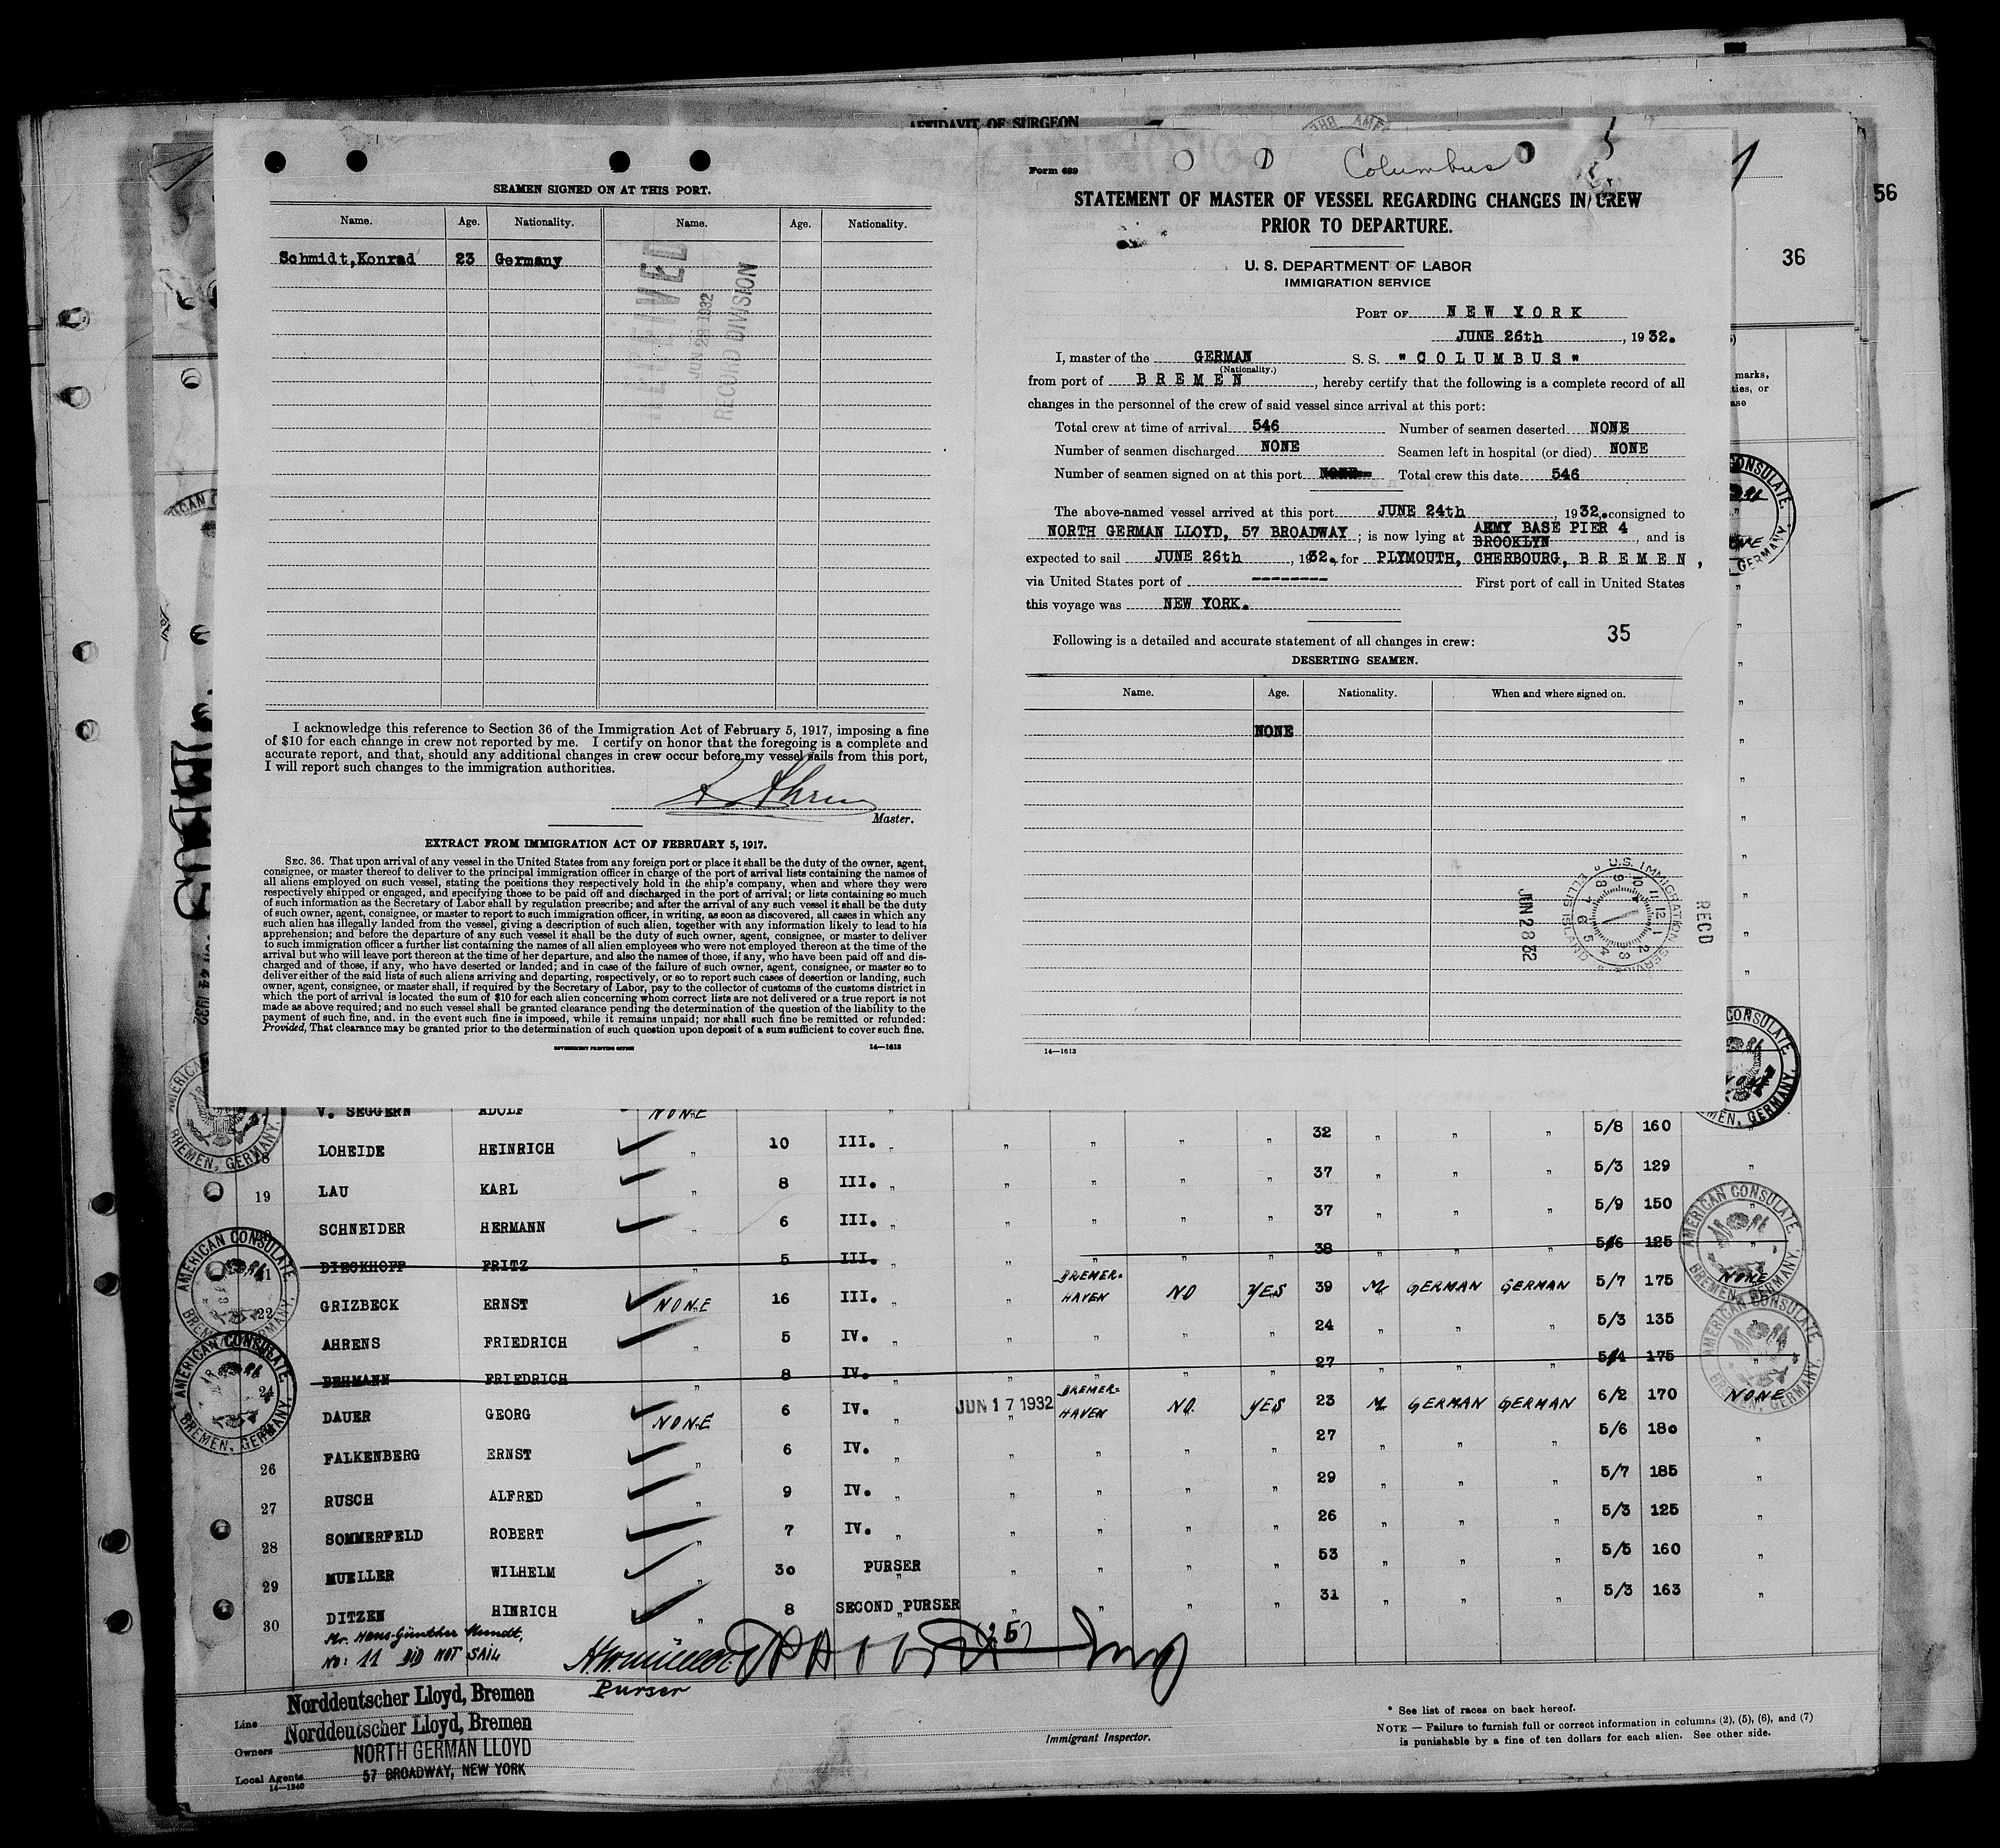 AFFIDAVIT OF SURGEON
56
36
SEAMEN SIGNED ON AT THIS PORT.
Name. Age. Nationality. Name. Age. Nationality.
Schmidt,Konrad 23 Germany
RECEIVED
JUN 28 1932
RECORD DIVISION
I acknowledge this reference to Section 36 of the Immigration Act of February 5, 1917, imposing a fine
of $10 for each change in crew not reported by me. I certify on honor that the foregoing is a complete and
accurate report, and that, should any additional changes in crew occur before my vessel sails from this port,
I will report such changes to the immigration authorities.
Master.
EXTRACT FROM IMMIGRATION ACT OF FEBRUARY 5, 1917.
SEC. 36. That upon arrival of any vessel in the United States from any foreign port or place it shall be the duty of the owner, agent,
consignee, or master thereof to deliver to the principal immigration officer in charge of the port of arrival lists containing the names of
all aliens employed on such vessel, stating the positions they respectively hold in the ship's company, when and where they were
respectively shipped or engaged, and specifying those to be paid off and discharged in the port of arrival; or lists containing so much
of such information as the Secretary of Labor shall by regulation prescribe; and after the arrival of any such vessel it shall be the duty
of such owner, agent, consignee, or master to report to such immigration officer, in writing, as soon as discovered, all cases in which any
such alien has illegally landed from the vessel, giving a description of such alien, together with any information likely to lead to his
apprehension; and before the departure of any such vessel it shall be the duty of such owner, agent, consignee, or master to deliver
to such immigration officer a further list containing the names of all alien employees who were not employed thereon at the time of the
arrival but who will leave port thereon at the time of her departure, and also the names of those, if any, who have been paid off and dis-
charged and of those, if any, who have deserted or landed; and in case of the failure of such owner, agent, consignee, or master so to
deliver either of the said lists of such aliens arriving and departing, respectively, or so to report such cases of desertion or landing, such
owner, agent, consignee, or master shall, if required by the Secretary of Labor, pay to the collector of customs of the customs district in
which the port of arrival is located the sum of $10 for each alien concerning whom correct lists are not delivered or a true report is not
made as above required; and no such vessel shall be granted clearance pending the determination of the question of the liability to the
payment of such fine, and. in the event such fine is imposed, while it remains unpaid; nor shall such fine be remitted or refunded:
Provided, That clearance may be granted prior to the determination of such question upon deposit of a sum sufficient to cover such fine.
GOVERNMENT PRINTING OFFICE 14—1613
Form 689
Columbus
STATEMENT OF MASTER OF VESSEL REGARDING CHANGES IN CREW
PRIOR TO DEPARTURE.
U. S. DEPARTMENT OF LABOR
IMMIGRATION SERVICE
PORT OF NEW YORK
JUNE 26th, 1932.
I, master of the GERMAN S. S. "COLUMBUS"
(Nationality.)
from port of BREMEN, hereby certify that the following is a complete record of all
changes in the personnel of the crew of said vessel since arrival at this port:
Total crew at time of arrival 546 Number of seamen deserted NONE
Number of seamen discharged NONE Seamen left in hospital (or died) NONE
Number of seamen signed on at this port NONE Total crew this date 546
The above-named vessel arrived at this port JUNE 24th, 1932. consigned to
NORTH GERMAN LLOYD, 57 BROADWAY; is now lying at ARMY BASE PIER 4 BROOKLYN, and is
expected to sail JUNE 26th, 1932. for PLYMOUTH, CHERBOURG, BREMEN,
via United States port of -------- First port of call in United States
this voyage was NEW YORK.
35
Following is a detailed and accurate statement of all changes in crew:
DESERTING SEAMEN.
Name. Age. Nationality. When and where signed on.
NONE
U.S. IMMIGRATION SERVICE ELLIS ISLAND
JUN 28 32
RECD
14—1613
marks,
V. SEGGERN ADOLF NONE
LOHEIDE HEINRICH " 10 III. " " " " " 32 " " " 5/8 160 "
19 LAU KARL " 8 III. " " " " " 37 " " " 5/3 129 "
SCHNEIDER HERMANN " 6 III. " " " " " 37 " " " 5/9 150 "
DIECKHOFF FRITZ " 5 III. " " " " " 38 " " " 5/6 125 "
22 GRIZBECK ERNST NONE 16 III. " " BREMER=HAVEN NO YES 39 M GERMAN GERMAN 5/7 175 NONE
AHRENS FRIEDRICH " 5 IV. " " " " " 24 " " " 5/3 135
24 BEHMANN FRIEDRICH " 8 IV. " " " " " 27 " " " 5/4 175 "
DAUER GEORG NONE 6 IV. " JUN 17 1932 BREMER=HAVEN NO. YES 23 M GERMAN GERMAN 6/2 170 NONE
26 FALKENBERG ERNST " 6 IV. " " " " " 27 " " " 5/6 180 "
27 RUSCH ALFRED " 9 IV. " " " " " 29 " " " 5/7 185 "
28 SOMMERFELD ROBERT " 7 IV. " " " " " 26 " " " 5/3 125 "
29 MUELLER WILHELM " 30 PURSER " " " " " 53 " " " 5/5 160 "
30 DITZEN HINRICH " 8 SECOND PURSER " " " " 31 " " " 5/3 163 "
AMERICAN CONSULATE
BREMEN, GERMANY.
Mr. Hans-Günther Mundt,
No: 11 DID NOT SAIL
(25)
Purser
Line Norddeutscher Lloyd, Bremen
Owners Norddeutscher Lloyd, Bremen
Local Agents NORTH GERMAN LLOYD
57 BROADWAY, NEW YORK
14—1240
Immigrant Inspector.
* See list of races on back hereof.
NOTE — Failure to furnish full or correct information in columns (2), (5), (6), and (7)
is punishable by a fine of ten dollars for each alien. See other side.